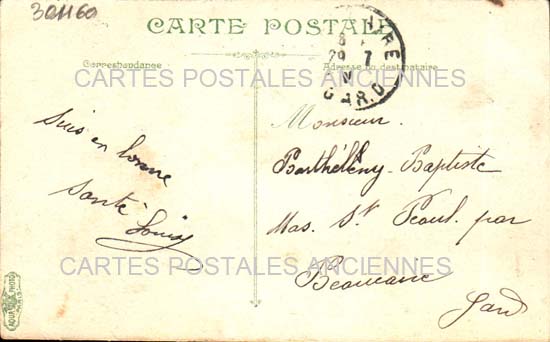 CARTE POSTALE
Correspondance
Adresse du destinataire
CARTES POSTALES ANCIENNES
GARD
Monsieur.
Suis en bonne
Santé Louis
Barthélémy-Baptiste
Mas. St Peaul. par
Beaucaire
Gard
CARTES POSTALES ANCIENNES